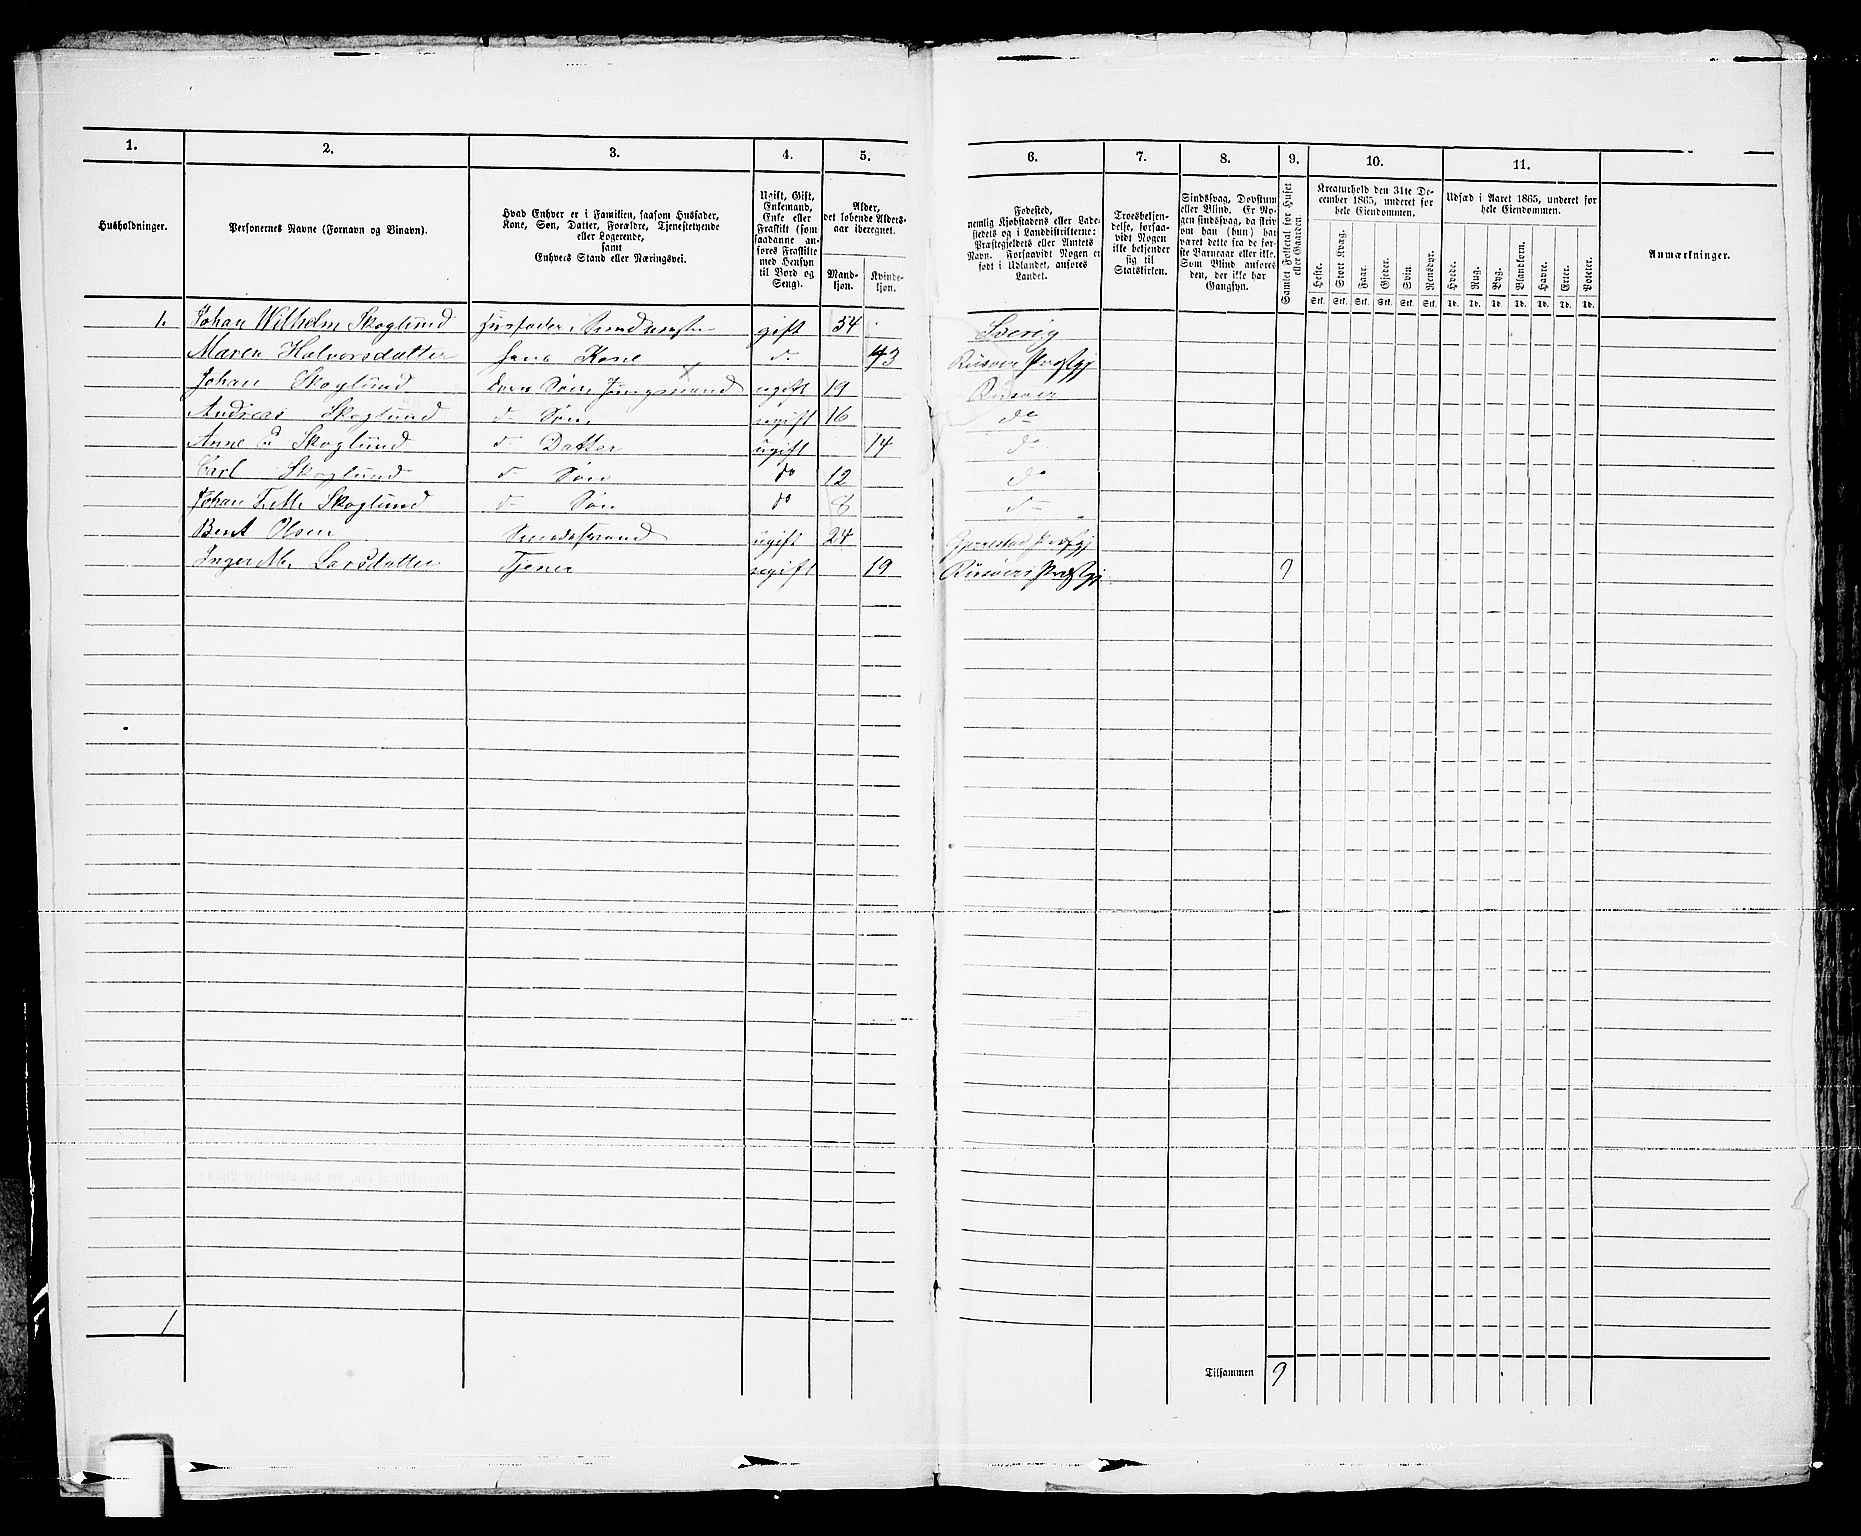 1. 2. 3. 4. 5. 6. 7. 8. 9. 10. 11.
Husholdninger.
Personernes Navne (Fornavn og Binavn).
Hvad Enhver er i Familien, saasom Husfader,
Kone, Søn, Datter, Forældre, Tjenestetyende
eller Logerende,
samt
Enhvers Stand eller Næringsvei.
Ugift, Gift,
Enkemand,
Enke eller
Fraskilt (som
saadanne an-
føres Fraskilte
med Hensyn
til Bord og
Seng).
Alder,
det løbende Alders-
aar iberegnet.
Mand-
kjøn.
Kvinde-
kjøn.
Fødested,
nemlig Kjøbstadens eller Lade-
stedets og i Landdistrikterne:
Præstegjeldets eller Amtets
Navn. Forsaavidt Nogen er
født i Udlandet, anføres
Landet.
Troesbekjen-
delse, forsaa-
vidt Nogen
ikke bekjender
sig til
Statskirken.
Sindssvag, Døvstum
eller Blind. Er No-
gen sindssvag, da skriv
om han (hun) har
været dette fra de før-
ste Barneaar eller ikke.
Som Blind anføres
den, der ikke har
Gangsyn.
Samlet Folketal for Huset
eller Gaarden.
Kreaturhold den 31te De-
cember 1865, underet for
hele Eiendommen.
Heste. Stort Kvæg. Faar. Gjeder. Svin. Rensdyr.
Stk. Stk. Stk. Stk. Stk. Stk.
Udsæd i Aaret 1865, underet for
hele Eiendommen.
Hvede. Rug. Byg. Blandkorn. Havre. Erter. Poteter.
Td. Td. Td. Td. Td. Td. Td.
Anmærkninger.
1. Johan Wilhelm Skoglund Husfader gift 54 Sverig
Maren Halvorsdatter hans Kone do 43 Risøer Præstgj
Johan Skoglund deres Søn, Jungmand ugift 19 Risøer
Andreas Skoglund do Søn ugift 16 do
Anne Skoglund do Datter ugift 14 do
Carl Skoglund do Søn do 12 do
Johan Skoglund do Søn do 8 do
Bent Olsen ugift 24 Præstgj
Inger M. Larsdatter Tjener ugift 19 Risøers Præstgj 9
1
Tilsammen 9